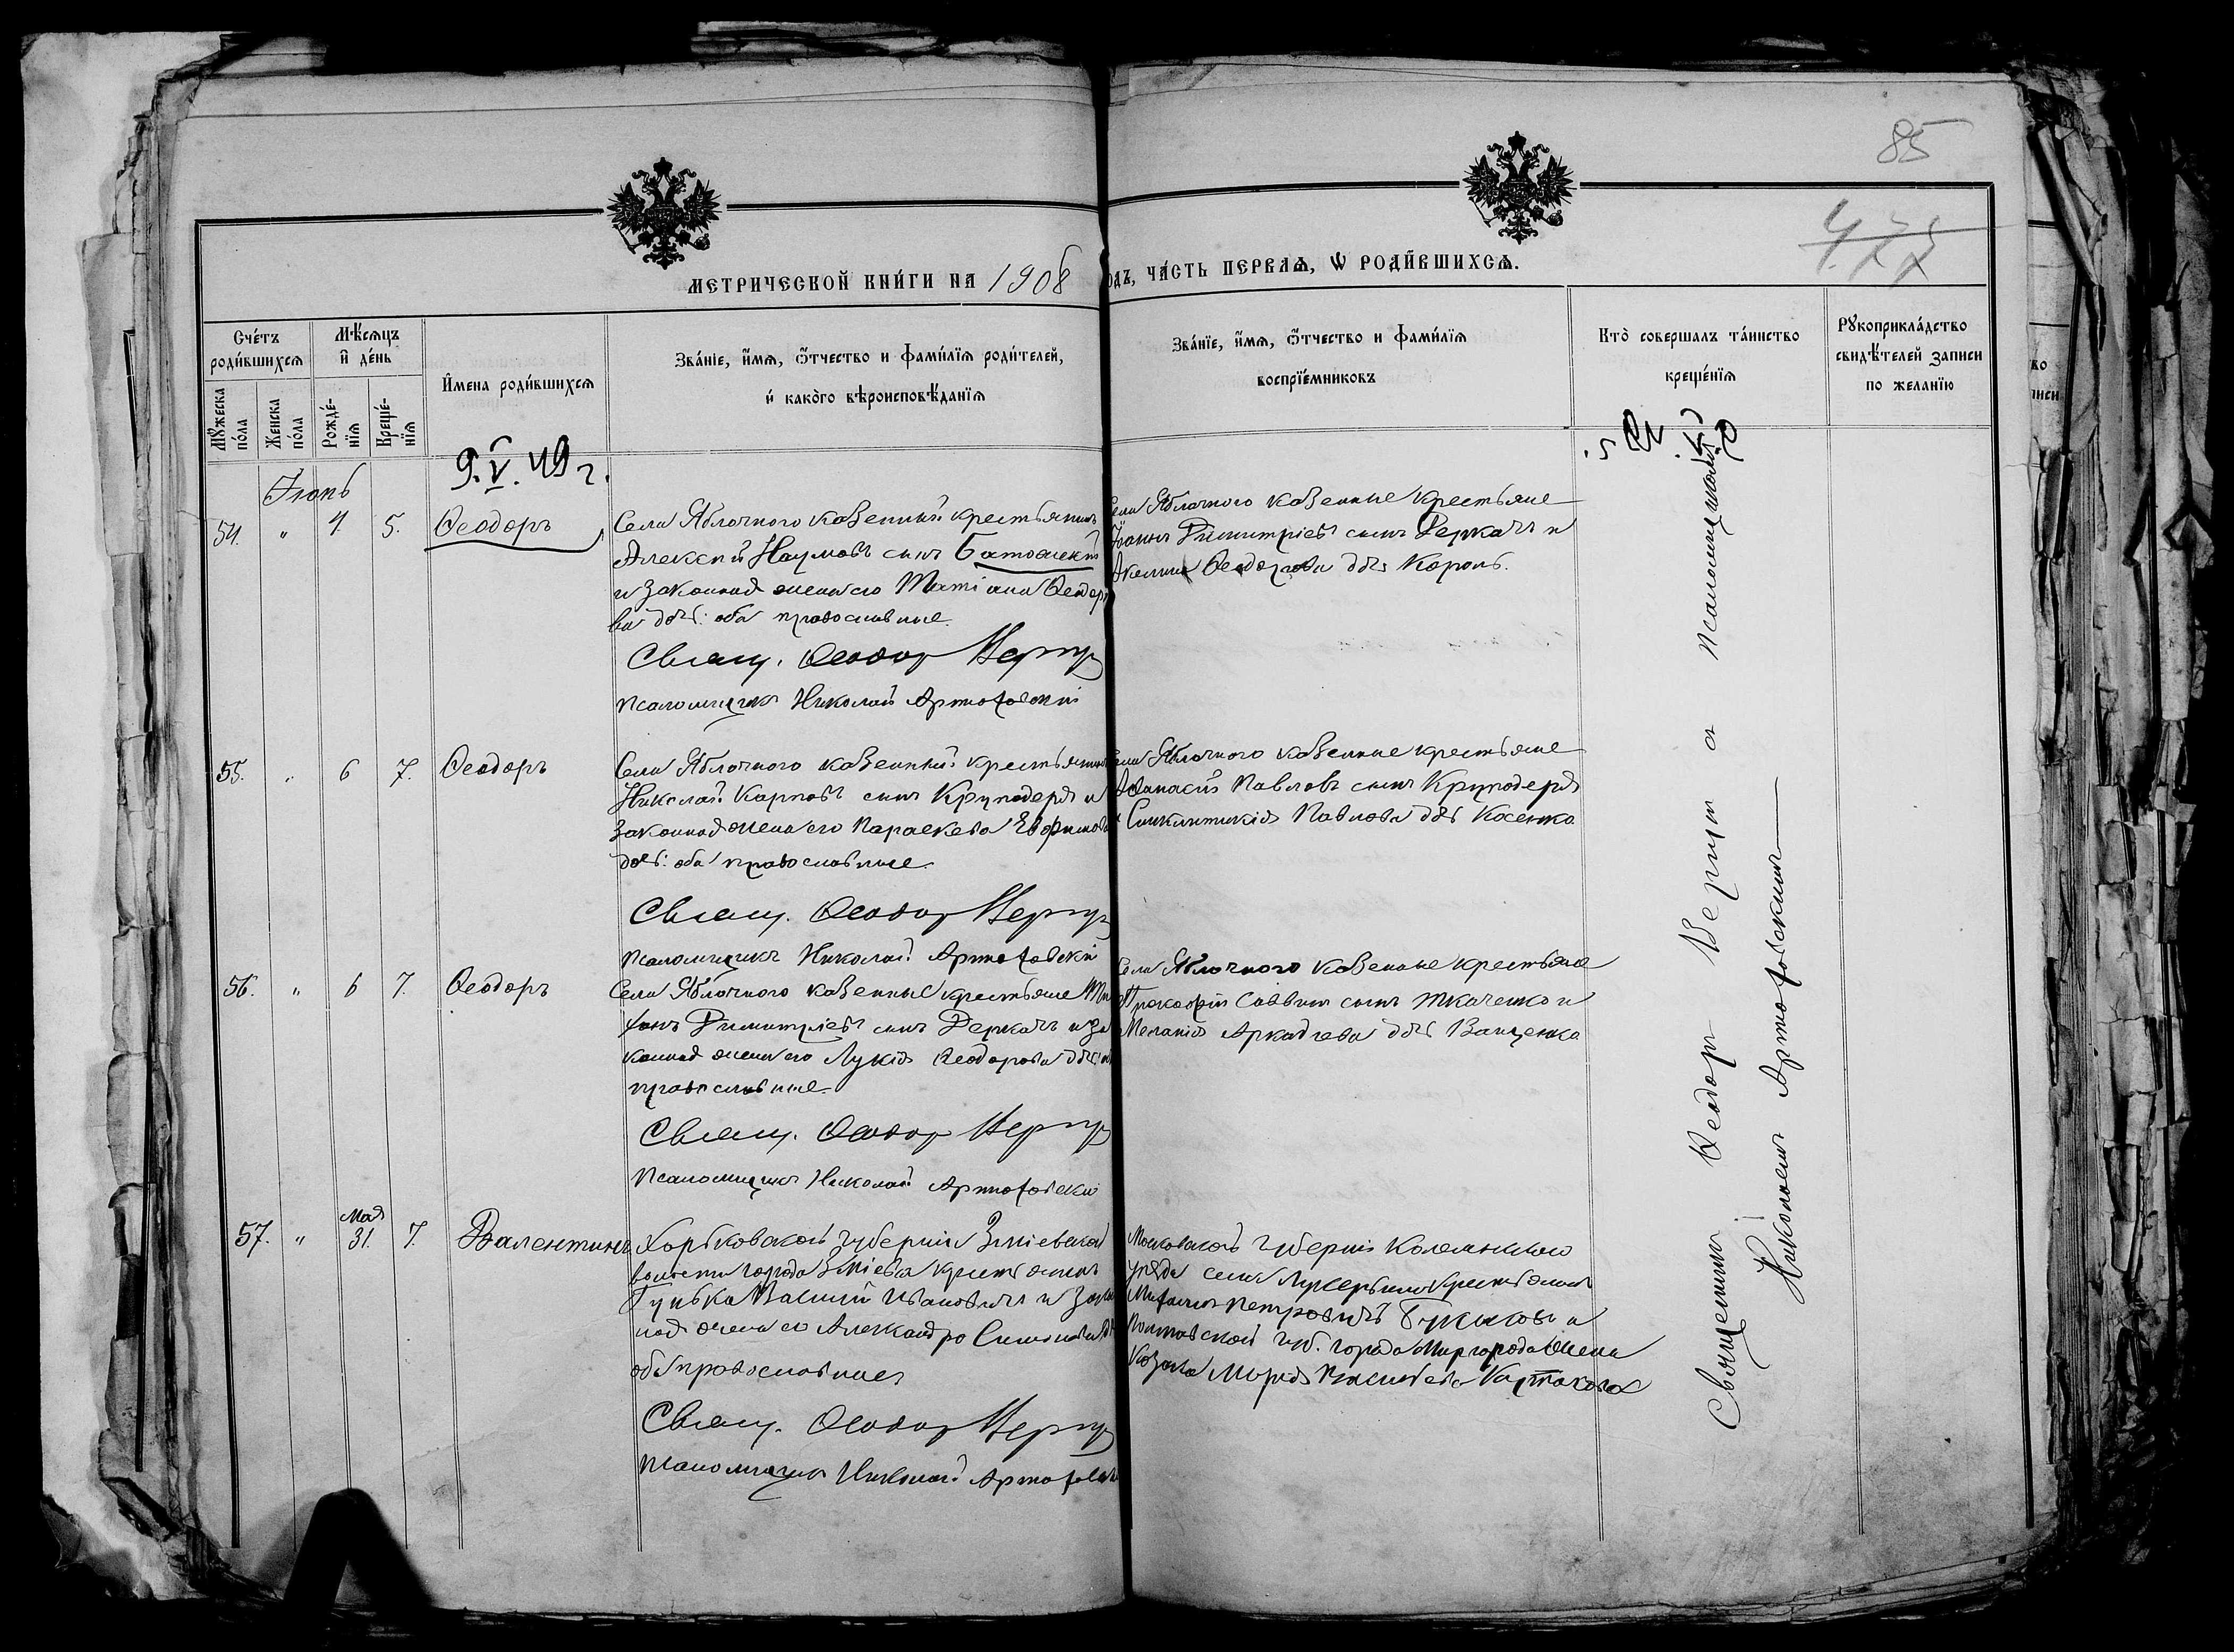 85
МЕТРИЧЕСКОЙ КНИ́ГИ НА 1908
ОДЪ, ЧА́СТЬ ПЕРВАѦ, Ѡ РОДИ́ВШИХСѦ.
Сче́тъ роди́вшихсѧ
Мѣ́сѧцъ и҆ де́нь
Мꙋ́жеска по́ла
Же́нска по́ла
Рожде́-нїѧ
Креще́-нїѧ
И҆мена роди́вшихсѧ
Зва́нїе, и҆́мѧ, ѻ҆́тчество и фами́лїѧ роди́телей,
и҆ како́гѡ вѣроисповѣ́данїѧ
Зва́нїе, и҆́мѧ, ѻ҆́тчество и фами́лїѧ
воспрїе́мниковъ
Кто̀ соверша́лъ та́инство
креще́нїѧ
Рꙋкоприкла́дство
свидѣ́телей записи
по жела́нїю
9.V.49 г.
Іюнь
54. " 4. 5. Ѳеодоръ
Села Яблочного казенный крестьянинъ
Алексій Наумовъ сынъ Батовскій
и законная жена его Ѳеодоро
ва дчь: оба православные.
Свящ. Ѳеодор Верпу
Псаломщикъ Николай Артюховскій
ела Яблочного казенные крестьяне
Іоаннъ Димитріевъ сынъ Деркачъ и
Акилина Ѳеодорова дчь Король.
55. " 6 7. Ѳеодоръ
Села Яблочного казенный крестьянинъ
Николай Карповъ сынъ Круподеря и
законная жена его Параскева Евфимова
дочь: оба православные.
Свящ. Ѳеодор Верпу
Псаломщикъ Николай Артюховскій
ела Яблочного казенные крестьяне
Аѳанасій Павловъ сынъ Круподеря
Синклитикія Павлова дчь Косенко
56. " 6 7. Ѳеодоръ
Села Яблочного казенные крестьяне
хонъ Димитріевъ сынъ Деркачъ и за
конная жена его Лукія Ѳеодорова дчь:
православные.
Свящ. Ѳеодор Верпу
Псаломщикъ Николай Артюховскій
Села Яблочного казенные крестьяне
Прокофій Саввинъ сынъ Ткаченко и
Меланія Аркадіева дчь Ващенко
57. " Мая 31. 7. Валентинъ
Харьковской губерніи Зміевской
волости города Зміева крестьянинъ
Гунька Василій Ивановичъ и закон
ная жена его Александра Симонова
оба православные
Свящ. Ѳеодор Верпу
Псаломщикъ Николай Артюховскій
Московской губерніи Коломенскаго
уѣзда села крестьянинъ
Михаилъ Петровичъ и
Полтавской губ. города Миргорода жена
козака Марія Васильева
Священникъ Ѳеодоръ съ псаломщикомъ
Николаемъ Артюховскимъ